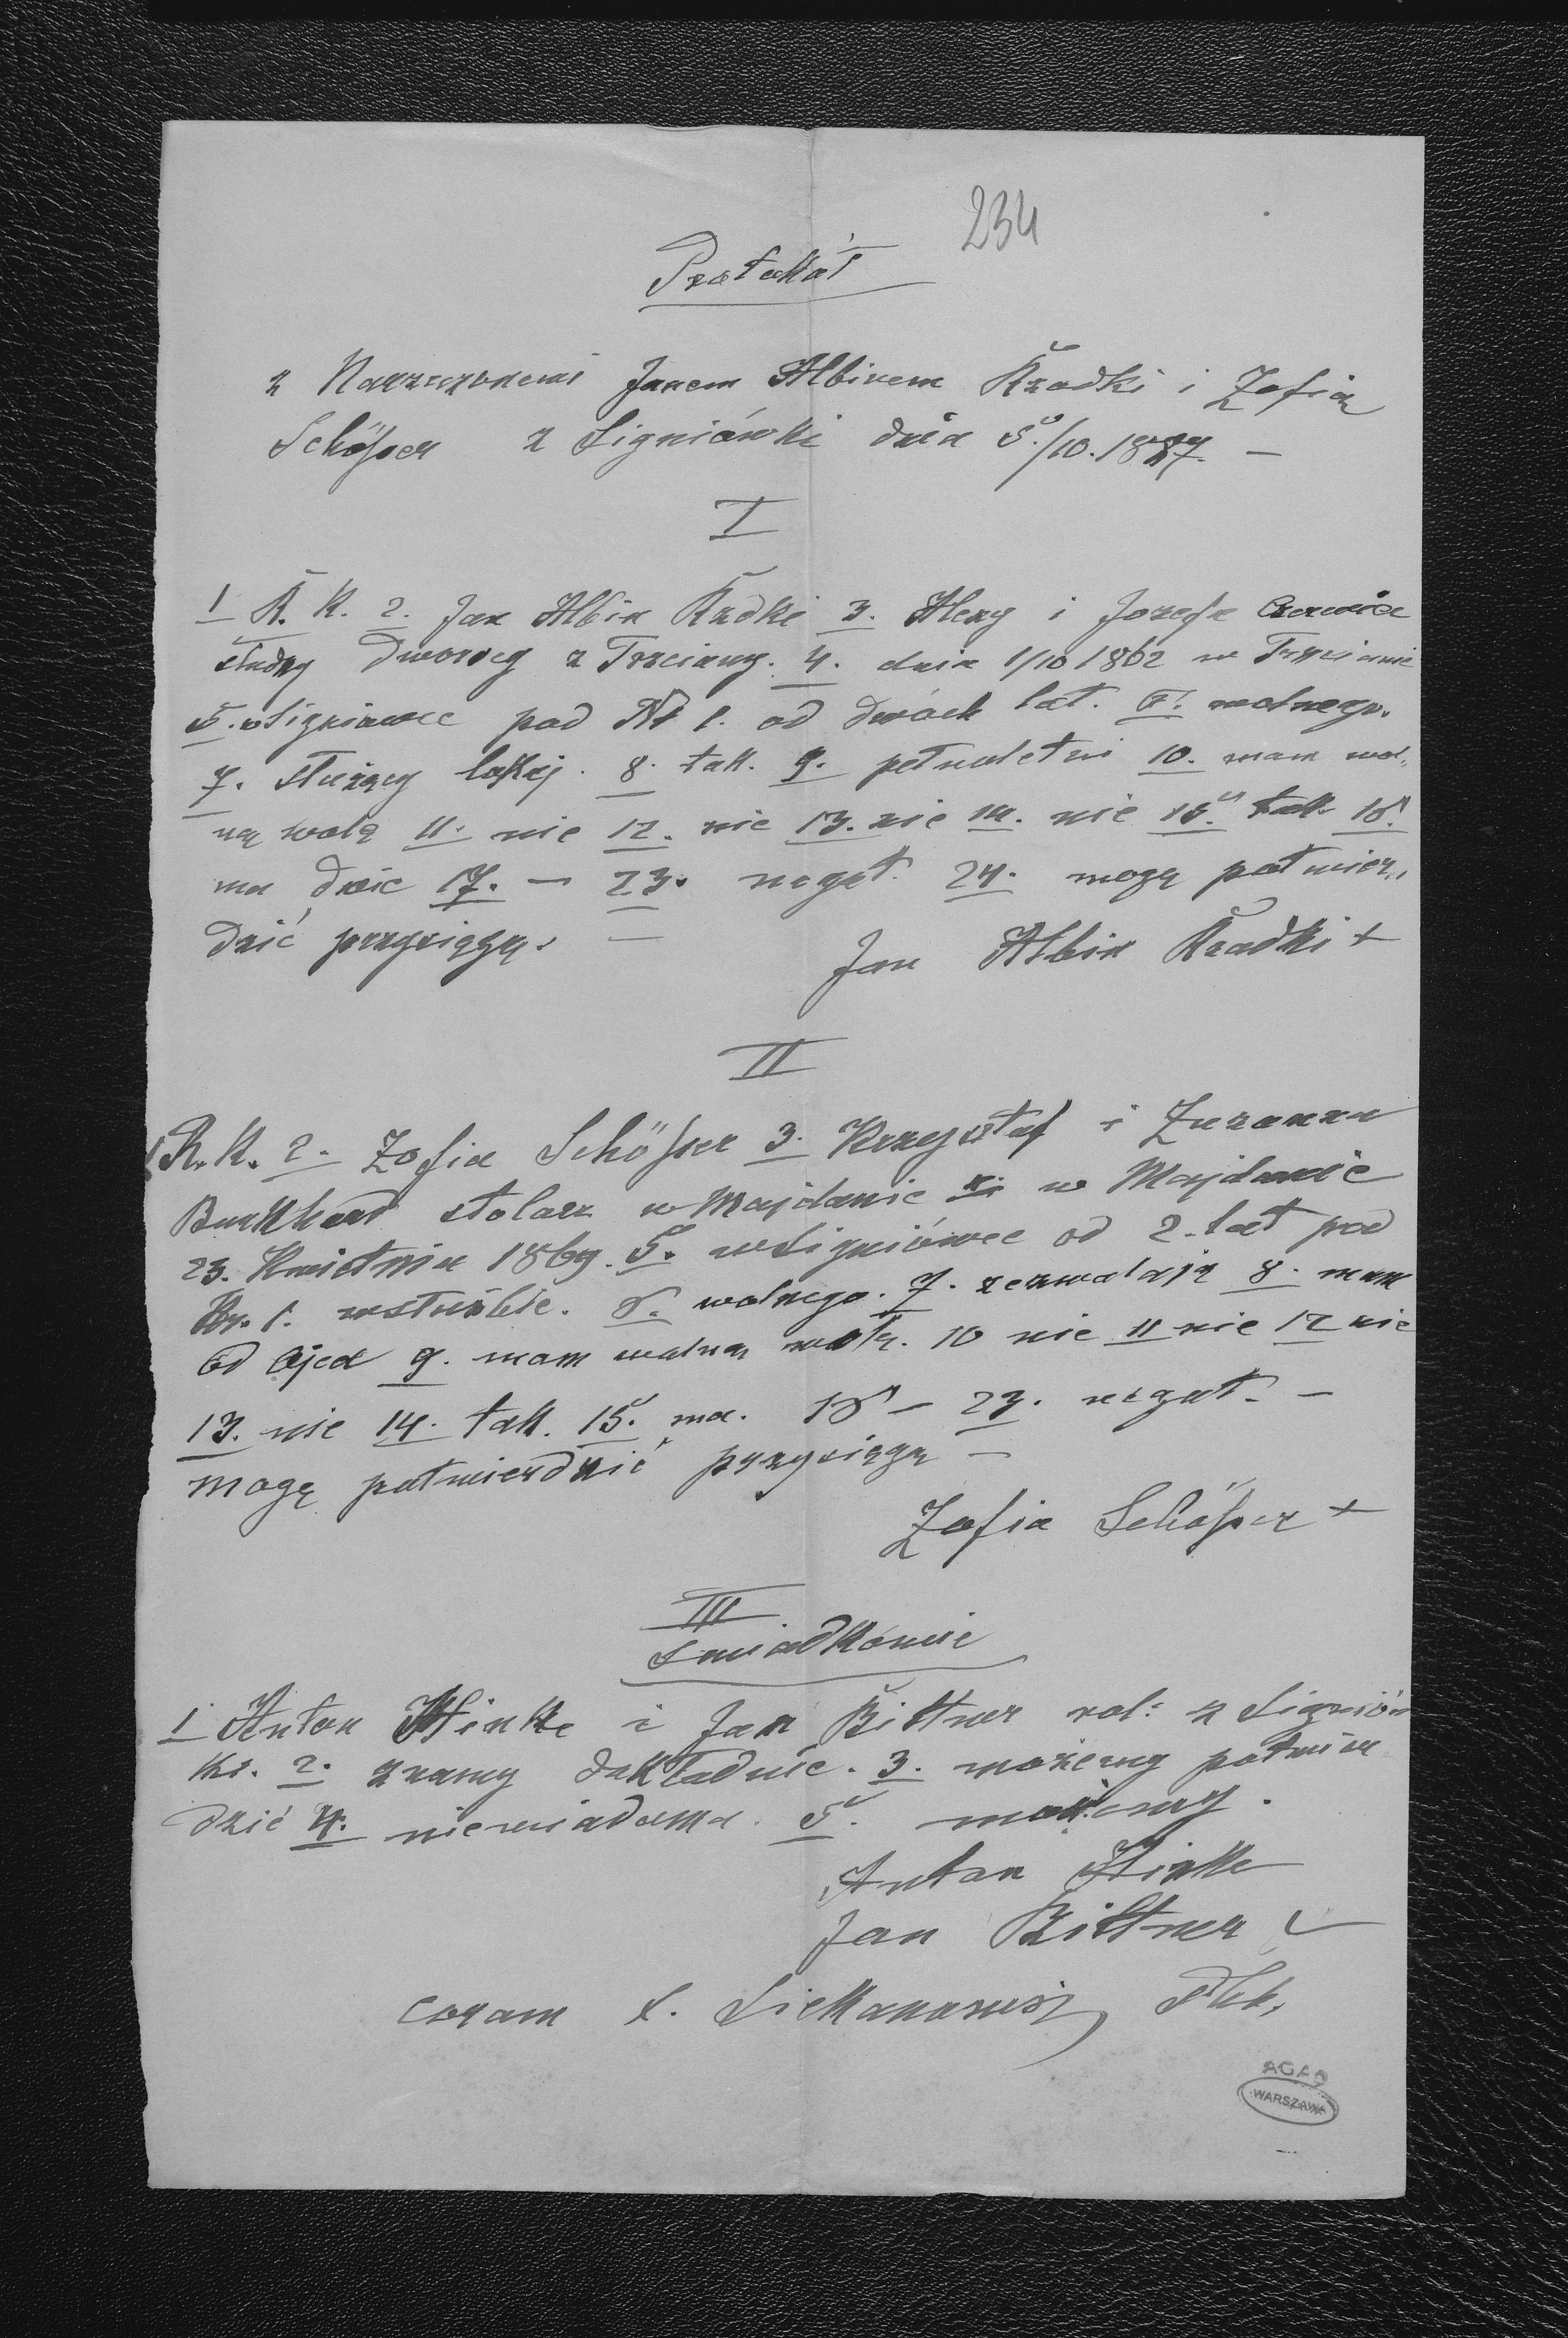 234
Protokół
z Narzeczonemi Janem Albinem Rzadki i Zofią
Schösser z Signiówki dnia 5./10. 1887. —
I
1 R. K. 2. Jan Albin Rzdki 3. Alexy i Jozefa
służby dworscy z Trzciany. 4. dnia 1/10 1862 w Trzcianie
5. w Signiowce pod Nr 1. od dwóch lat. 6. wolnego.
7. służący lokaj. 8. tak. 9. pełnoletni 10. mam wol„
ną wolą 11. nie 12. nie 13. nie 14. nie 15. tak 16.
ma dwie 17. — 23. negat. 24. mogę potwier„
dzić przysięgą. —
Jan Albin Rzadki +
II
1 R. K. 2. Zofia Schösser 3. Krzysztof i Zuzanna
Burkhard stolarz w Majdanie w Majdanie
23. Kwietnia 1869. 5. w Signiówce od 2. lat pod
Nr. 1. w służbie. 6. wolnego. 7. zezwalają 8. mam
od Ojca 9. mam wolną wolę. 10 nie 11 nie 12 nie
13. nie 14. tak. 15. ma. 16 — 23. negat. —
mogę potwierdzić przysięgą —
Zofia Schösser +
III
Świadkowie
1 Anton Hinke i Jan Bittner rol: z Signiów
ki. 2. znamy dokładnie. 3. możemy potwier
dzić 4. niewiadoma. 5. możemy.
Anton Hinke
Jan Bittner
coram X.
AGAD
WARSZAWA